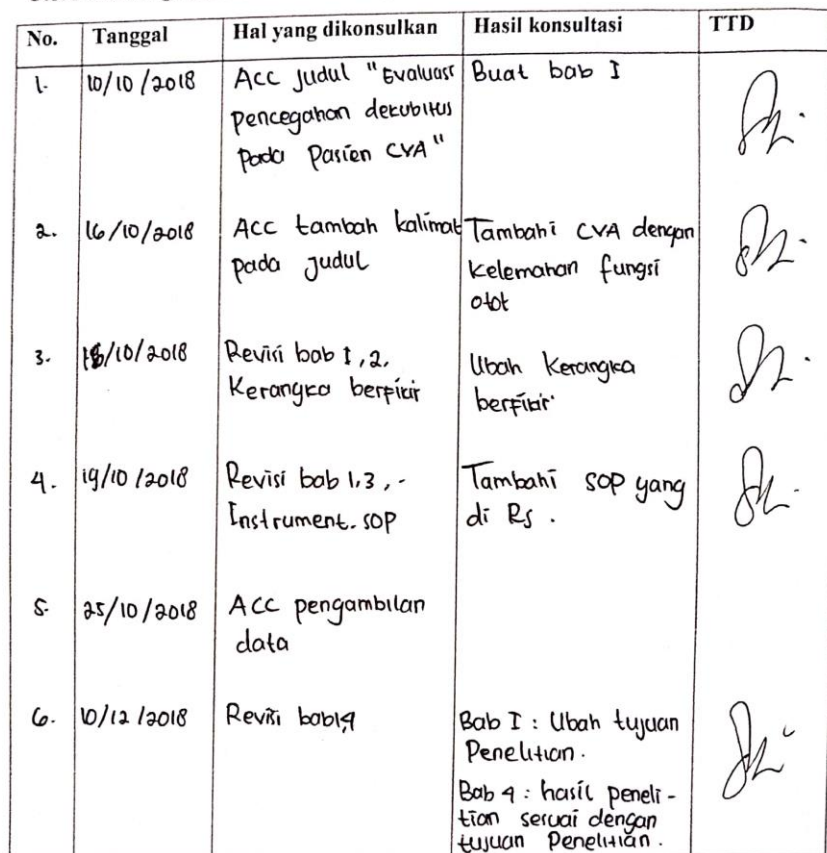 No. Tanggal Hal yang dikonsulkan Hasil konsultasi TTD
1. 10/10/2018 Acc Judul "Evaluasi Buat bab I
pencegahan dekubitus
pada Pasien CVA"
2. 16/10/2018 Acc tambah kalimat Tambahi CVA dengan
pada judul kelemahan fungsi
otot
3. 18/10/2018 Revisi bab 1,2, Ubah Kerangka
Kerangka berfikir berfikir
4. 19/10/2018 Revisi bab 1,3,- Tambahi SOP yang
Instrument. SOP di Rs.
5. 25/10/2018 ACC pengambilan
data
6. 10/12/2018 Revisi bab 1,4 Bab I : Ubah tujuan
Penelitian.
Bab 4 : hasil peneli-
tian sesuai dengan
tujuan Penelitian.